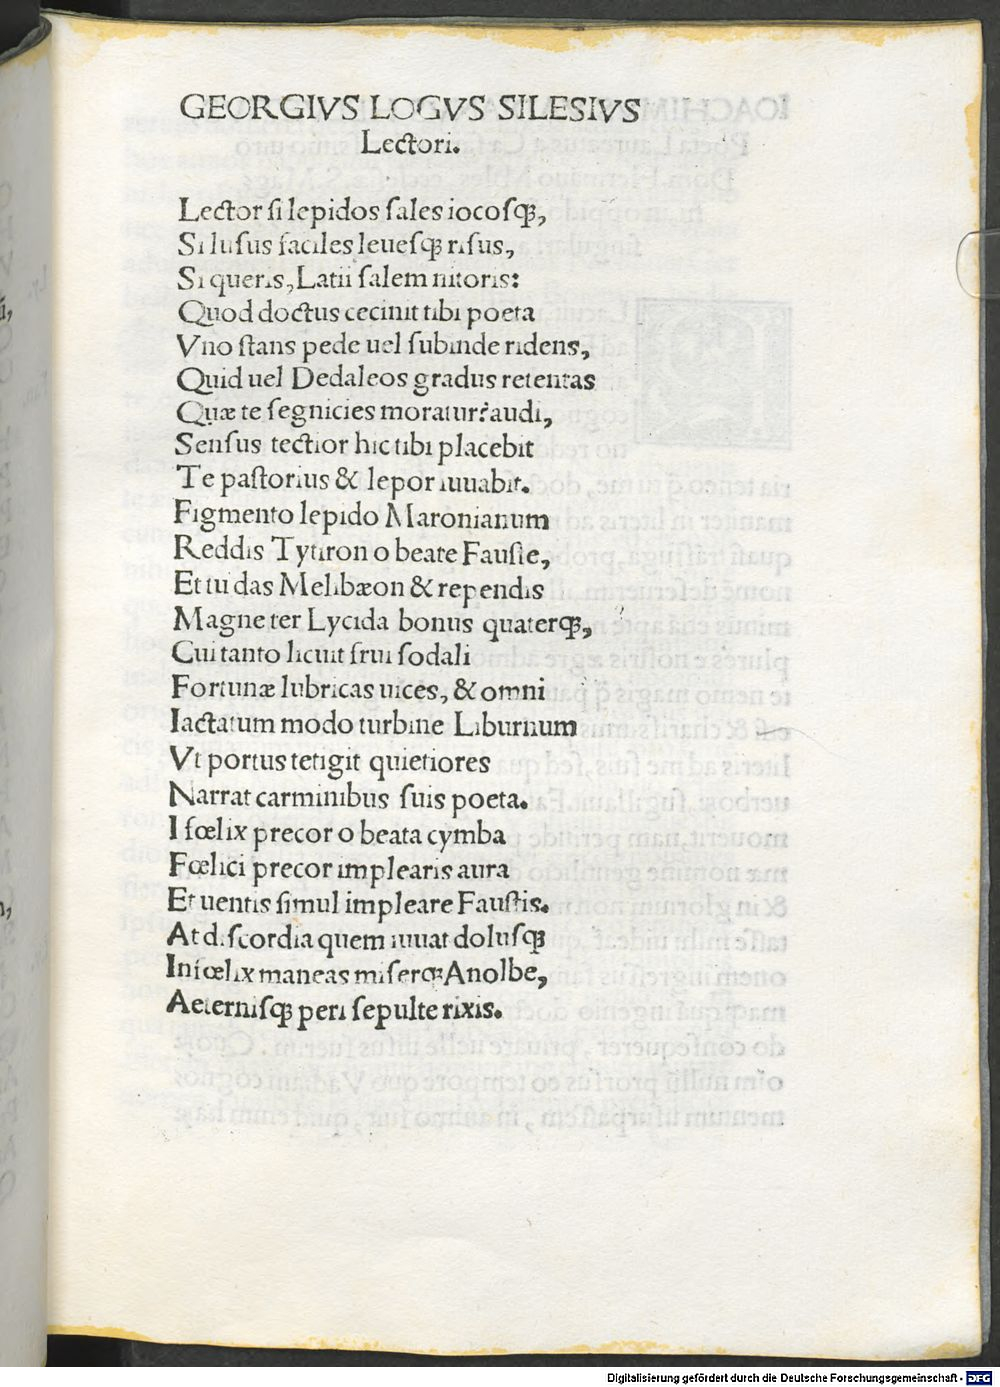 GEORGIVS LOGVS SILESIVS
Lectori.
Lector ſi lepidos ſales iocoſꝙ,
Si luſus faciles leueſꝙ riſus,
Si queris, Latii ſalem nitoris:
Quod doctus cecinit tibi poeta
Vno ſtans pede uel ſubinde ridens,
Quid uel Dedaleos gradus retentas
Quæ te ſegnicies moratur? audi,
Senſus tectior hic tibi placebit
Te paſtorius & lepor iuuabit.
Figmento lepido Maronianum
Reddis Tytiron o beate Fauſte,
Et tu das Melibæon & rependis
Magne ter Lycida bonus quaterꝙ,
Cui tanto licuit frui ſodali
Fortunæ lubricas uices, & omni
Iactatum modo turbine Liburnum
Vt portus tetigit quietiores
Narrat carminibus ſuis poeta.
I fœlix precor o beata cymba
Fœlici precor implearis aura
Et uentis ſimul impleare Fauſtis.
At diſcordia quem iuuat doluſꝙ
Infœlix maneas miſerꝙ Anolbe,
Aeterniſꝙ peri ſepulte rixis.
Digitalisierung gefördert durch die Deutsche Forschungsgemeinschaft - DFG